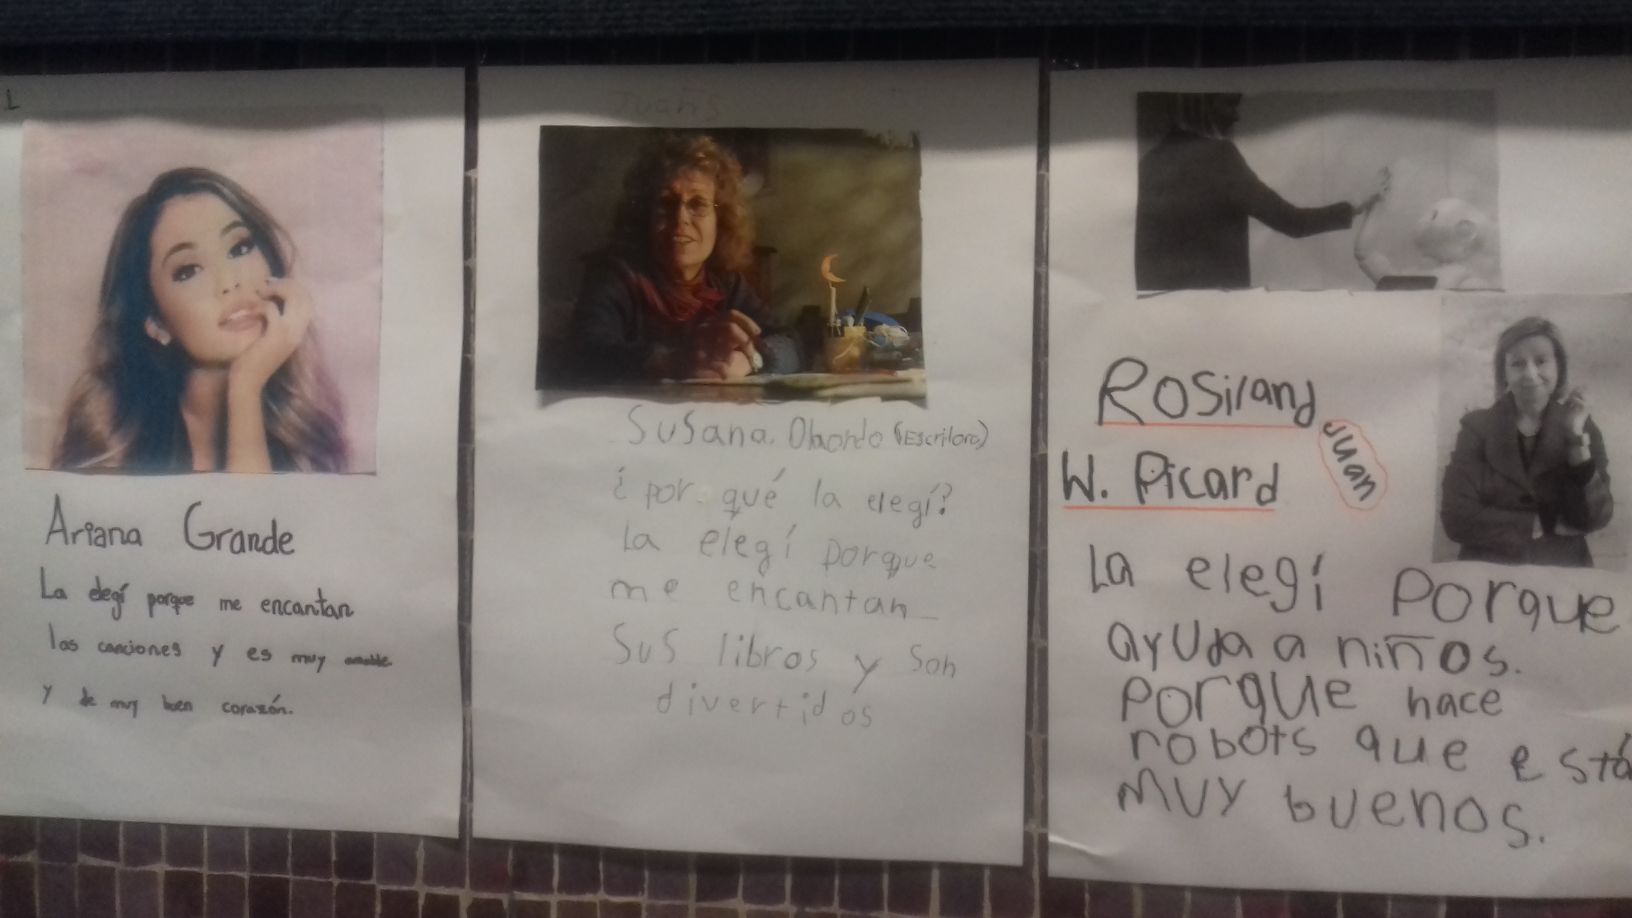 L
Ariana Grande
La elegí porque me encantan
las canciones y es muy amable
y de muy buen corazón.
Juan S
Susana Olaondo (Escritora)
¿por qué la elegí?
La elegí porque
me encantan
Sus libros y son
divertidos
Rosirand
Juan
W. Picard
La elegí Porque
ayuda a niños.
Porque hace
robots que está
muy buenos.